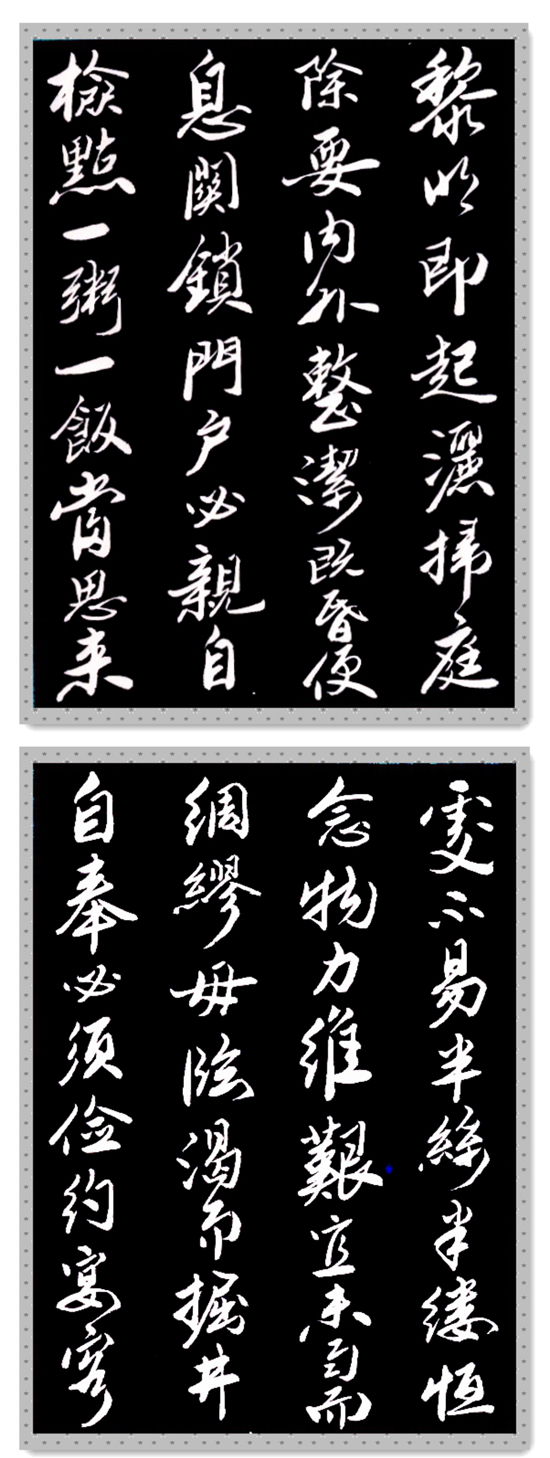 黎明即起灑掃庭
除要内外整潔既昏便
息關鎖門户必親自
檢點一粥一飯當思来
處不易半絲半縷恒
念物力維艱宜未雨而
綢繆毋臨渴而掘井
自奉必須儉約宴客